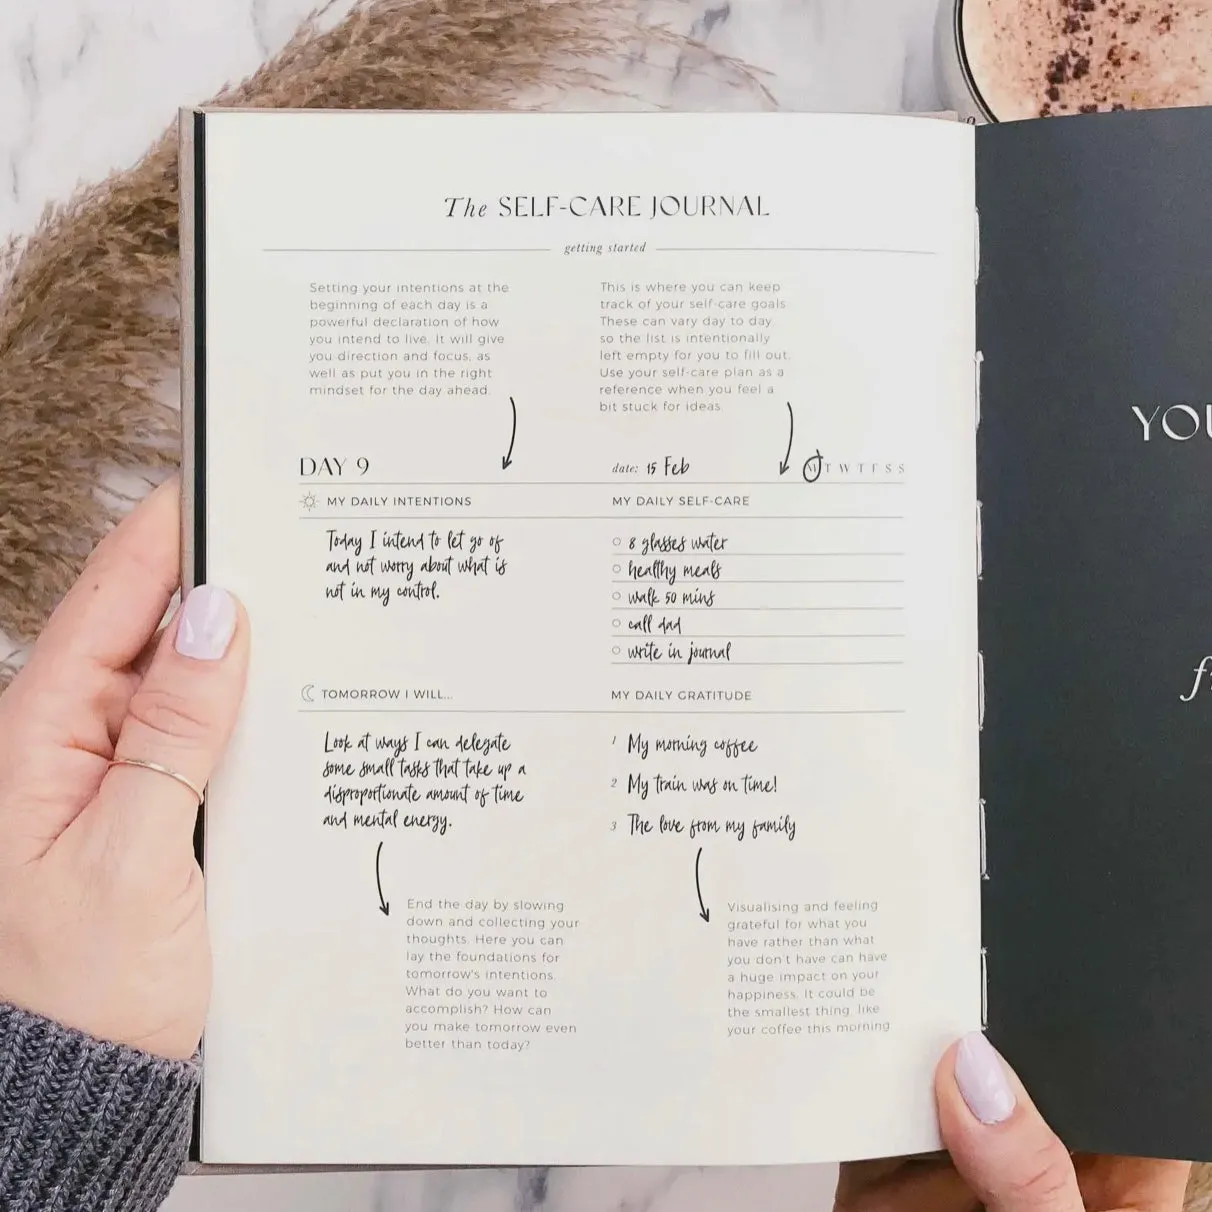 The SELF-CARE JOURNAL
getting started
Setting your intentions at the
beginning of each day is a
powerful declaration of how
you intend to live. It will give
you direction and focus, as
well as put you in the right
mindset for the day ahead.
This is where you can keep
track of your self-care goals
These can vary day to day
so the list is intentionally
left empty for you to fill out.
Use your self-care plan as a
reference when you feel a
bit stuck for ideas.
DAY 9
date: 15 Feb
M T W T F S S
MY DAILY INTENTIONS
Today I intend to let go of
and not worry about what is
not in my control.
MY DAILY SELF-CARE
8 glasses water
healthy meals
walk 50 mins
call dad
write in journal
TOMORROW I WILL...
Look at ways I can delegate
some small tasks that take up a
disproportionate amount of time
and mental energy.
MY DAILY GRATITUDE
1 My morning coffee
2 My train was on time!
3 The love from my family
End the day by slowing
down and collecting your
thoughts. Here you can
lay the foundations for
tomorrow's intentions.
What do you want to
accomplish? How can
you make tomorrow even
better than today?
Visualising and feeling
grateful for what you
have rather than what
you don't have can have
a huge impact on your
happiness. It could be
the smallest thing, like
your coffee this morning
YOU